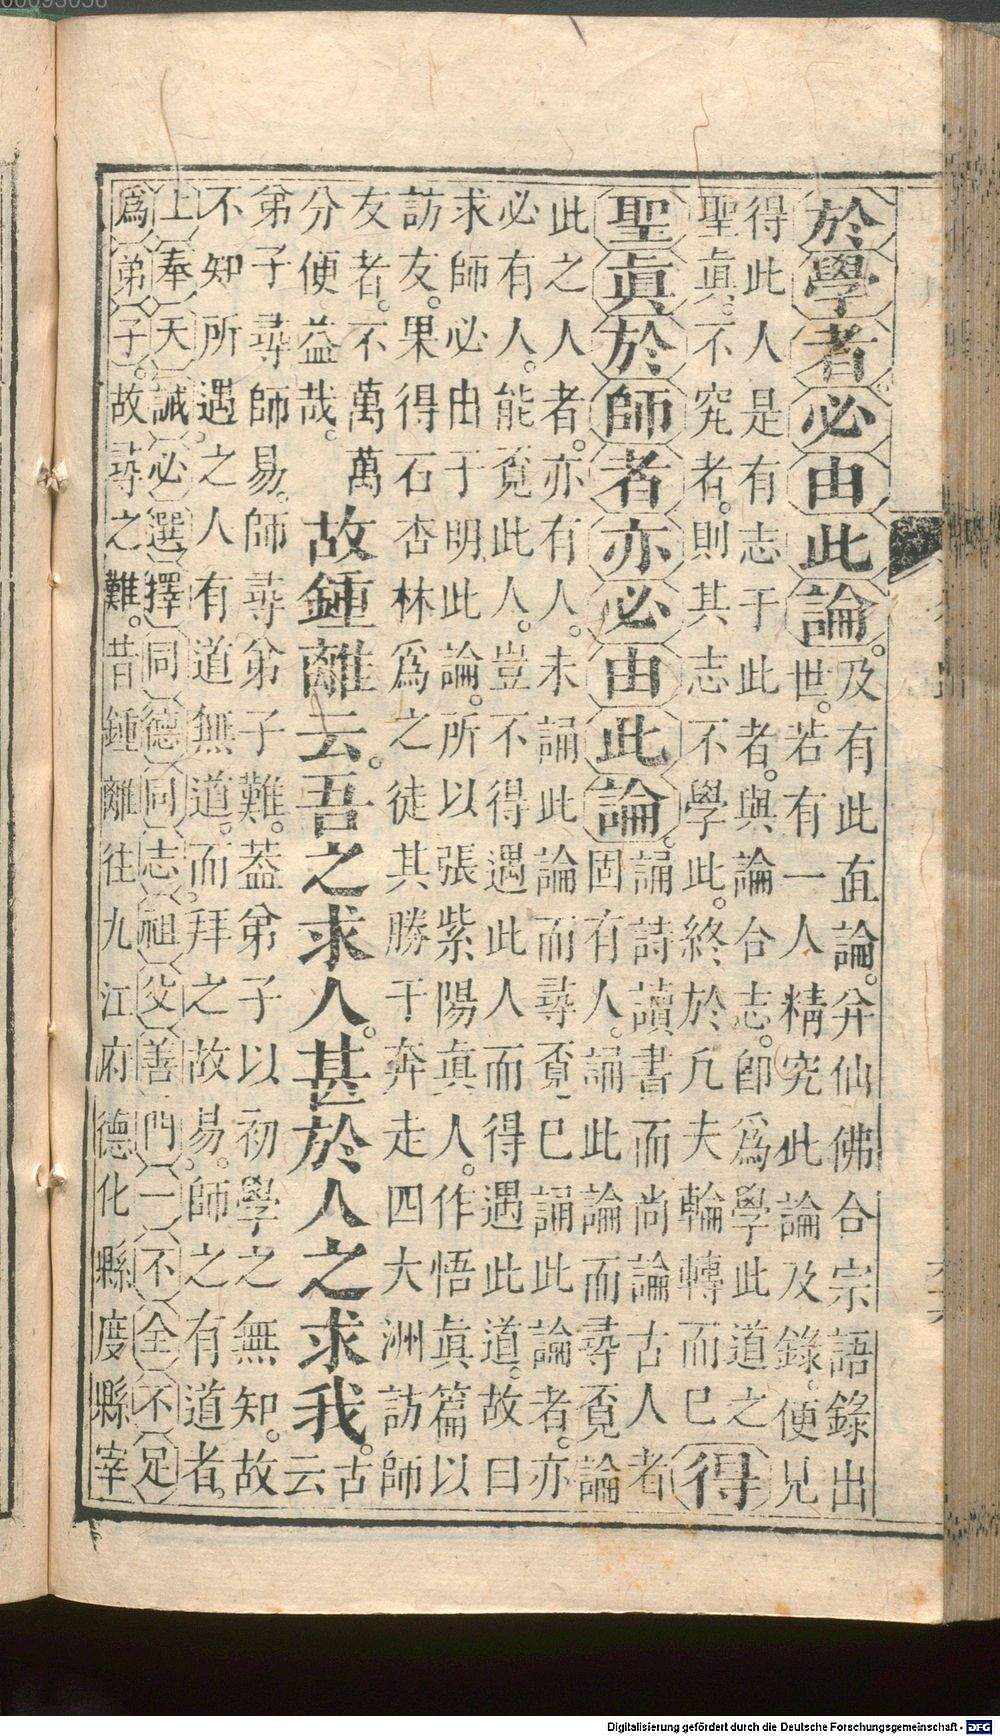 於學者必由此論。
及有此直論。并仙佛合宗語錄出
世。若有一人精究此論及錄。便見
得此人是有志于此者。與論合志。卽爲學此道之
聖眞。不究者。則其志不學此。終於凡夫輪轉而已
得
聖眞於師者亦必由此論。
誦詩讀書而尚論古人者
固有人。誦此論而尋覔論
此之人者。亦有人。未誦此論而尋覔已誦此論者。亦
必有人。能覔此人。豈不得遇此人而得遇此道。故曰
求師必由于明此論。所以張紫陽眞人。作悟眞篇以
訪友。果得石杏林爲之徒其勝于奔走四大洲訪師
友者。不萬萬
分便益哉。
故鍾離云。吾之求人。甚於人之求我。
古
云
弟子尋師易。師尋弟子難。葢弟子以初學之無知。故
不知所遇之人有道無道。而拜之故易。師之有道者。
上奉天誡。必選擇同德同志。祖父善門。一不全不足
爲弟子。故尋之難。昔鍾離往九江府德化縣度縣宰
Digitalisierung gefördert durch die Deutsche Forschungsgemeinschaft - DFG